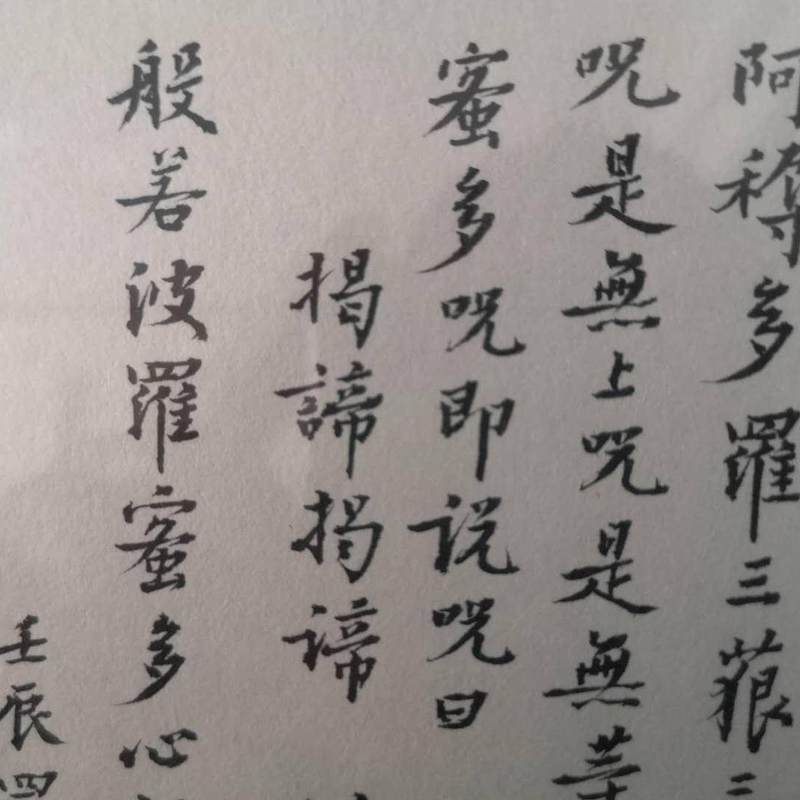 阿耨多羅三藐三
咒是無上咒是無等
蜜多咒即说咒曰
揭諦揭諦
般若波羅蜜多心
壬辰四